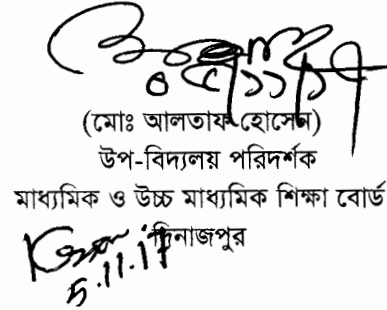 ০৫/১১/১৭
(মোঃ আলতাফ হোসেন)
উপ-বিদ্যলয় পরিদর্শক
মাধ্যমিক ও উচ্চ মাধ্যমিক শিক্ষা বোর্ড
দিনাজপুর
5.11.17